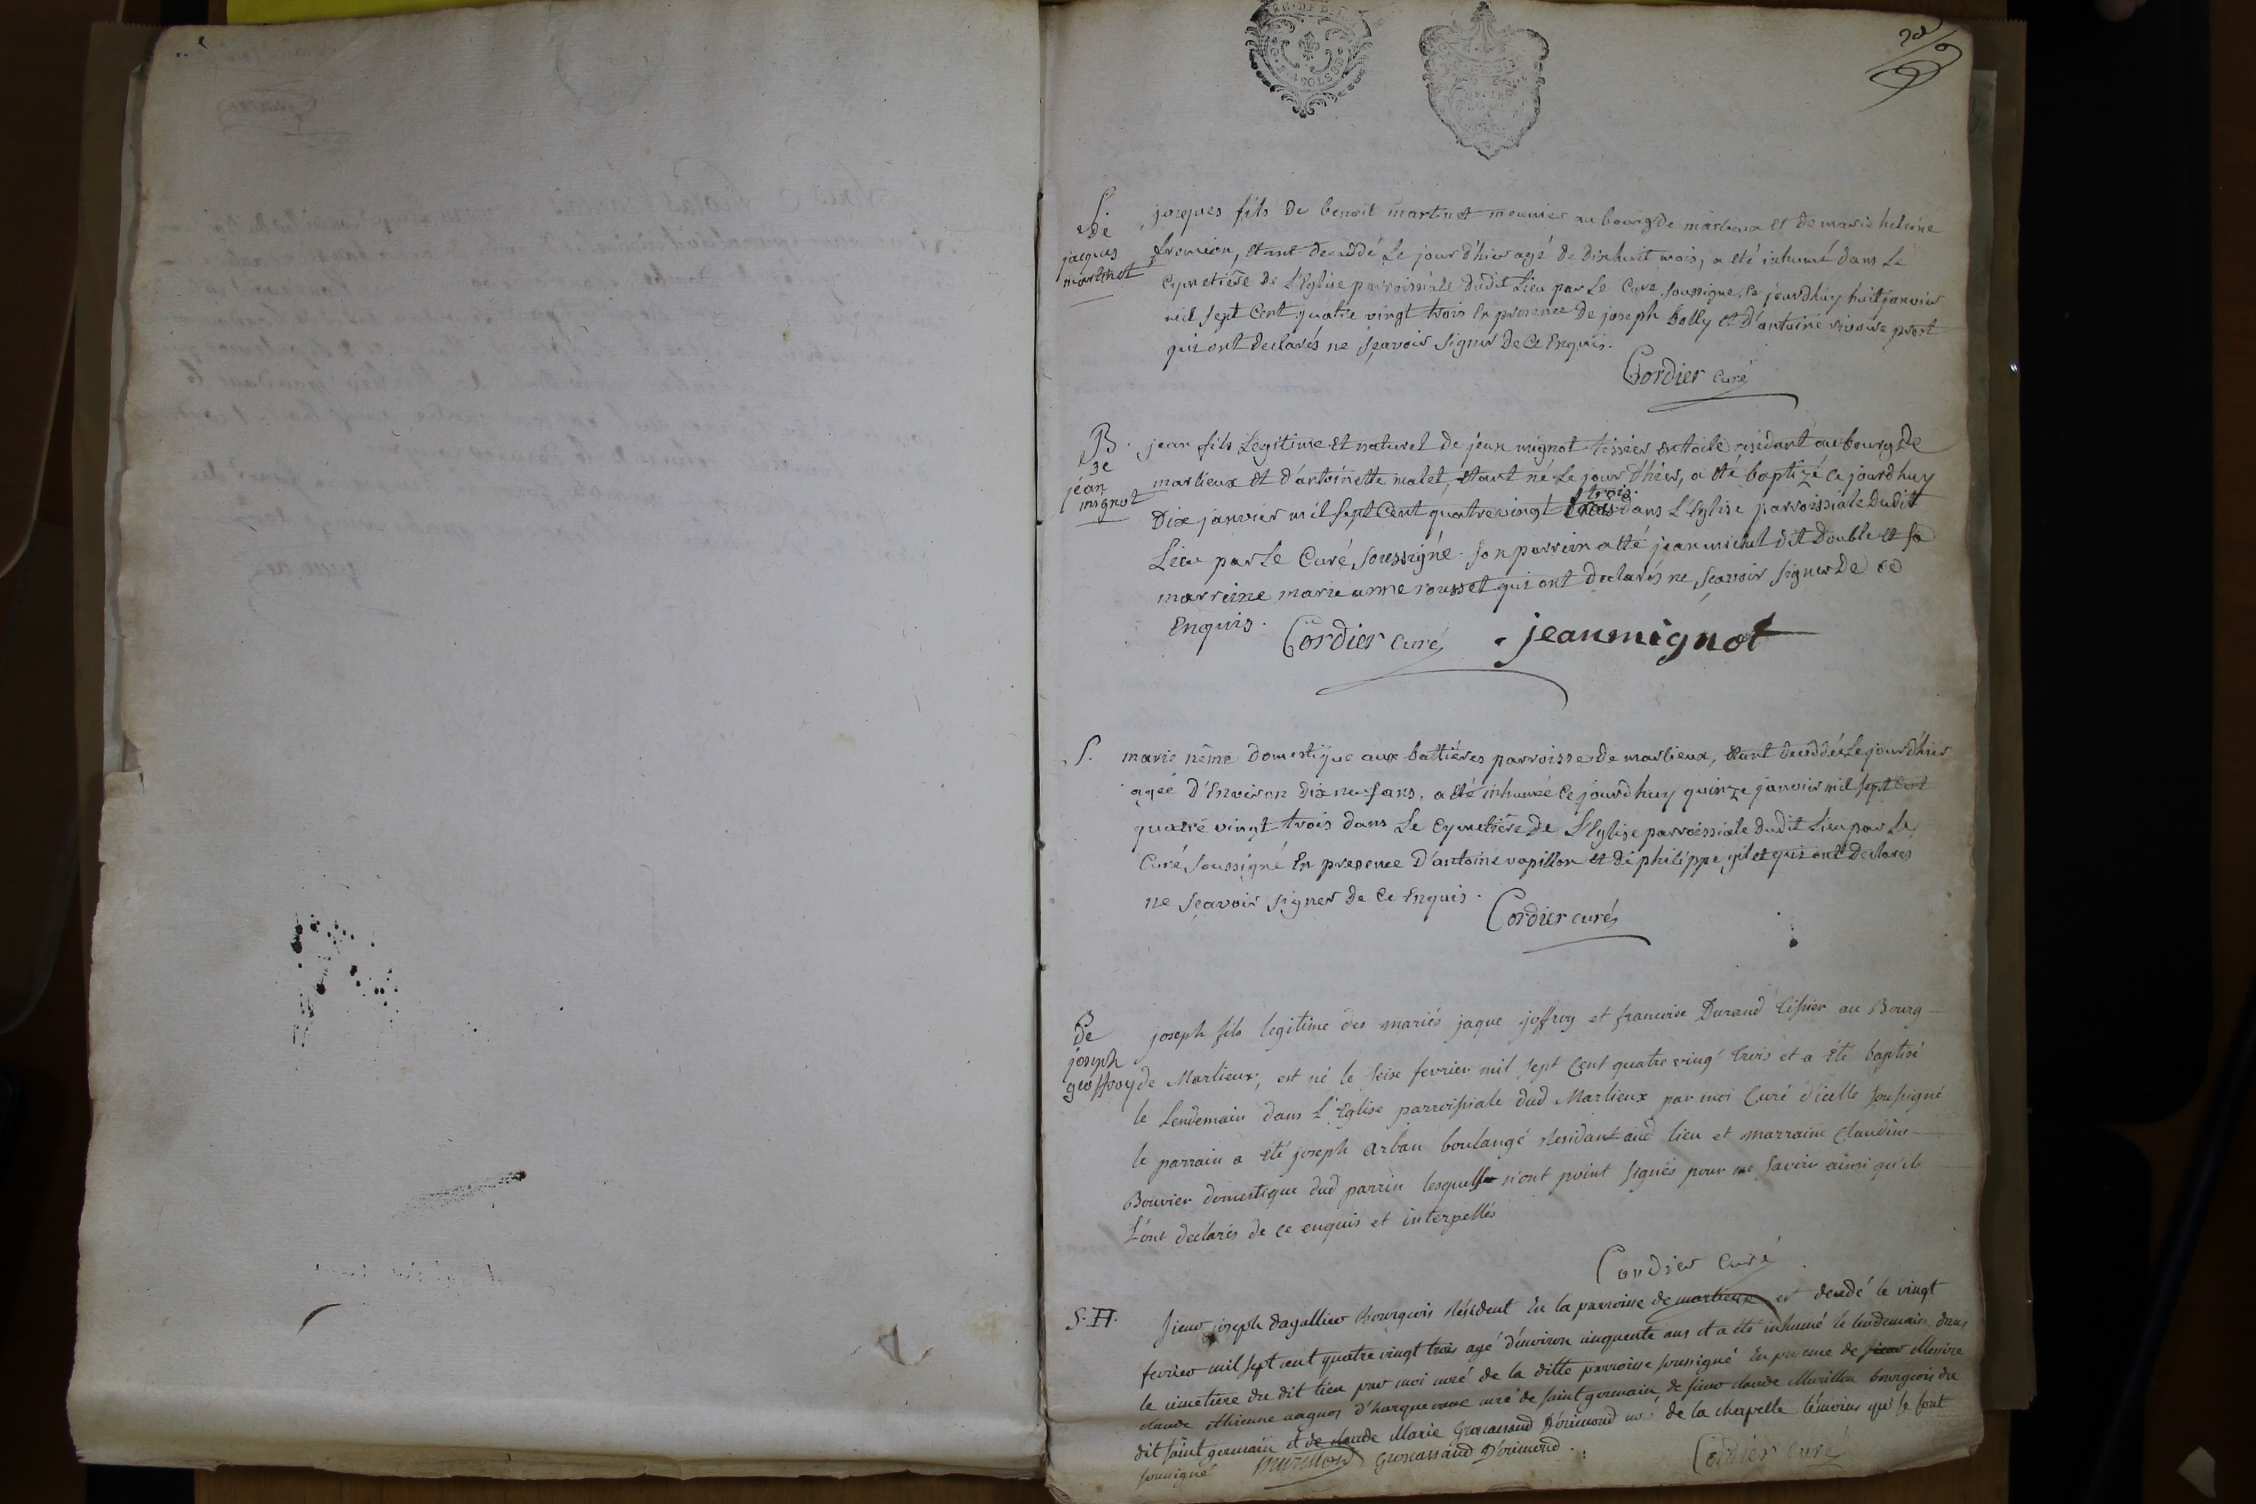 S.
de
jacques
martinet
jacques fils de benoit martinet meunier au bourg de marlieux et de marie heleine
étant decedé le jour d'hier agé de dixhuit mois, a eté inhumé dans le
cymetière de l'Eglise parroissiale dudit Lieu par le Curé soussigné, ce jourdhuy huit janvier
mil sept cent quatre vingt trois En presence de joseph bolly et d'antoine
qui ont declarés ne sçavoir signer de ce Enquis.
Cordier curé
B.
de
jean
mignot
jean fils Légitime et naturel de jean mignot tissier en toile residant au bourg de
marlieux et d'antoinette malet, étant né le jour d'hier, a été baptizé ce jourdhuy
Dix janvier mil sept Cent quatre vingt trois dans L'Eglise parroissiale dudit
Lieu par Le Curé soussigné. son parrein a été jean michel dit Double et sa
marreine marie anne rousset qui ont declarés ne sçavoir signer de ce
Enquis.
Cordier curé jeanmignot
S. marie néme domestique aux battières parroisse de marlieux, étant decedée le jour d'hier
agée d'Environ dix neuf ans, a été inhumée ce jourdhuy quinze janvier mil sept Cent
quatre vingt trois dans Le Cymetière de L'Eglise parroissiale dudit Lieu par Le
Curé soussigné En presence D'antoine vapillon et de philippe gilet qui ont declarés
ne sçavoir signer de ce Enquis.
Cordier curé
B
de
joseph
geoffroy
joseph fils legitime des mariés jaque joffroy et francoise Durand tissier au Bourg
de Marlieux, est né le seise fevrier mil sept Cent quatre ving' trois et a été baptisé
le Lendemain dans l'Eglise parroissiale dud Marlieux par moi Curé d'icelle soussigné
le parrain a été joseph arban boulangé residant aud lieu et marraine Claudine
Bouvier domestique dud parrin lesquels n'ont point signés pour ne savoir ainsi qu'ils
L'ont declarés de ce enquis et interpellés
Cordier curé
S. H. sieur joseph dagallier Bourgeois résident En la parroisse de marlieux est decedé le vingt
fevrier mil sept cent quatre vingt trois agé d'environ cinquante ans et a été inhumé le lendemain dans
le cimetiere du dit lieu par moi curé de la ditte parroisse soussigné En presence de sieur Messire
claude Ethienne curé de saint germain, de sieur claude Murillon bourgeois du
dit saint germain et de claude Marie Groscassand Dorimond curé de la chapelle témoins qui se sont
soussigné murillon Groscassand Dorimond.
Cordier curé